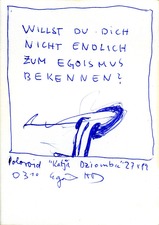 WILLST DU DICH
NICHT ENDLICH
ZUM EGOISMUS
BEKENNEN?
Polaroid "Katja Dziomba"